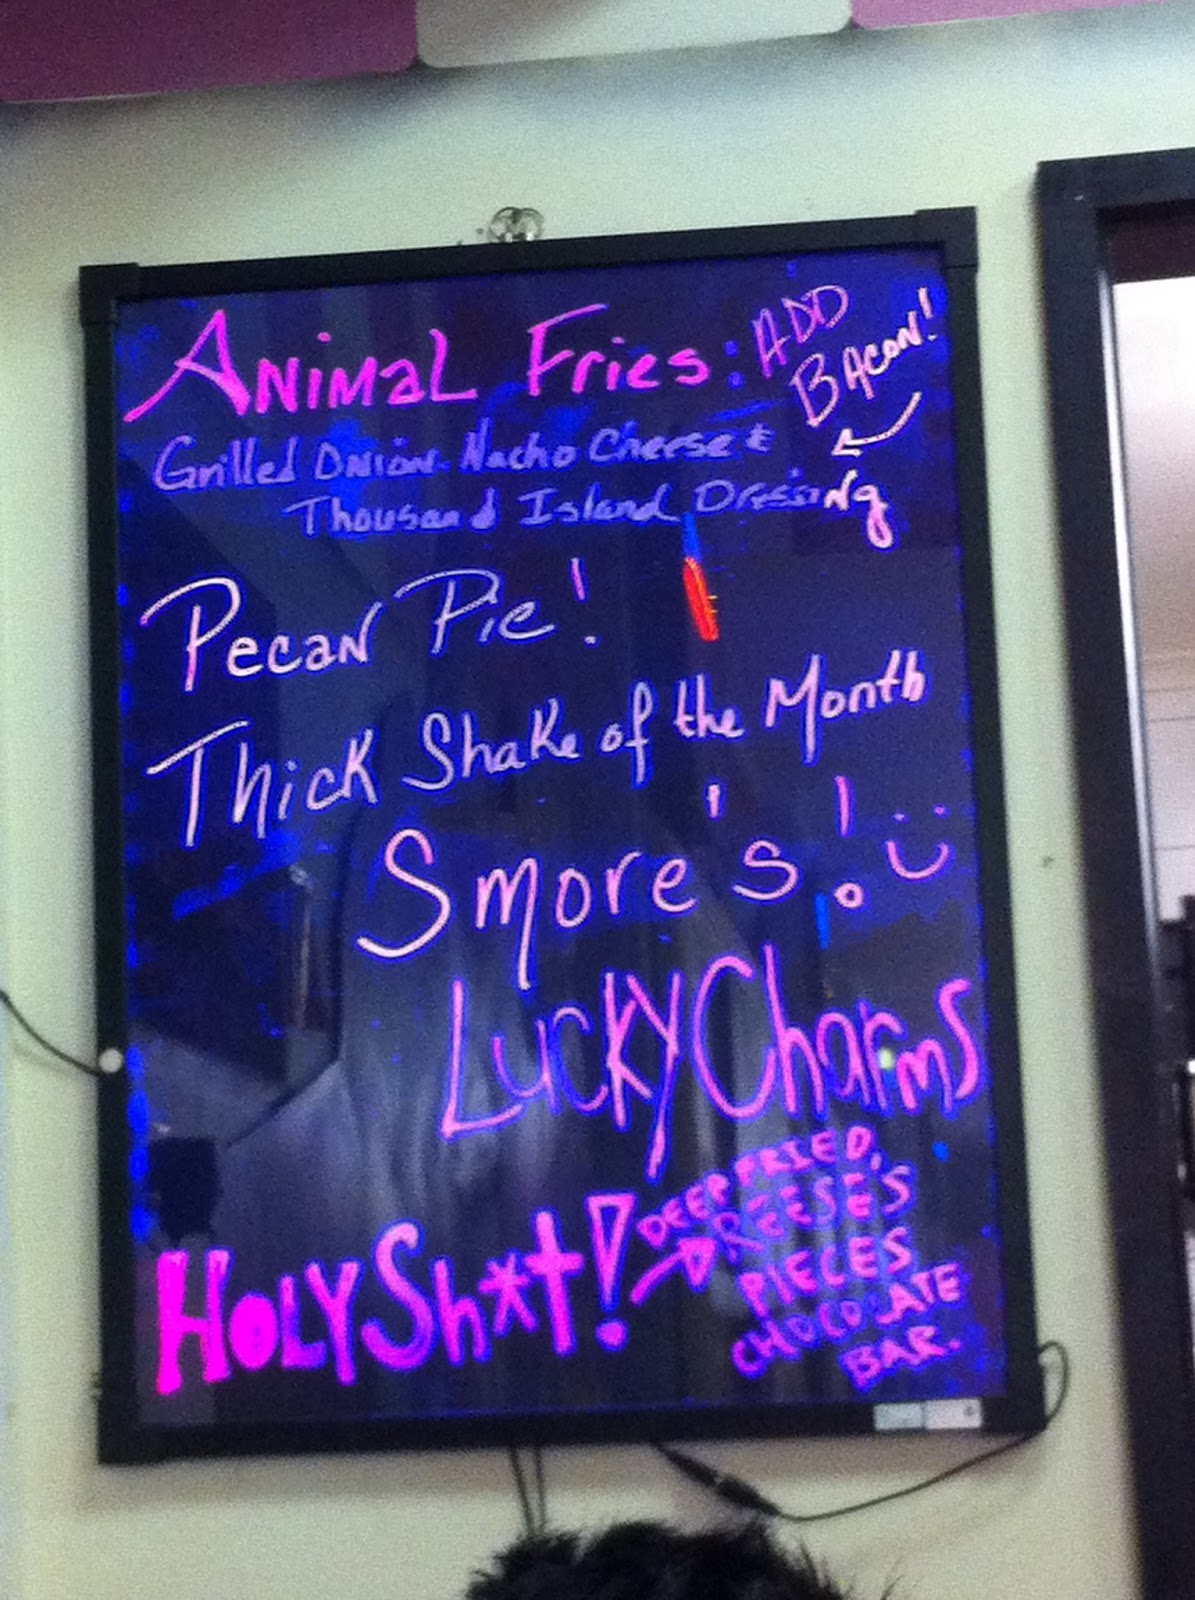 ANiMaL Fries: ADD
BACON!
Grilled ONiON Nacho Cheese &
Thousand Island Dressing
PecaN Pie!
Thick Shake of the Month
Smore's! :)
LuCKY Charms
HOLY Sh*t! → DEEP FRIED,
REESE'S
PIECES
CHOCOLATE
BAR.